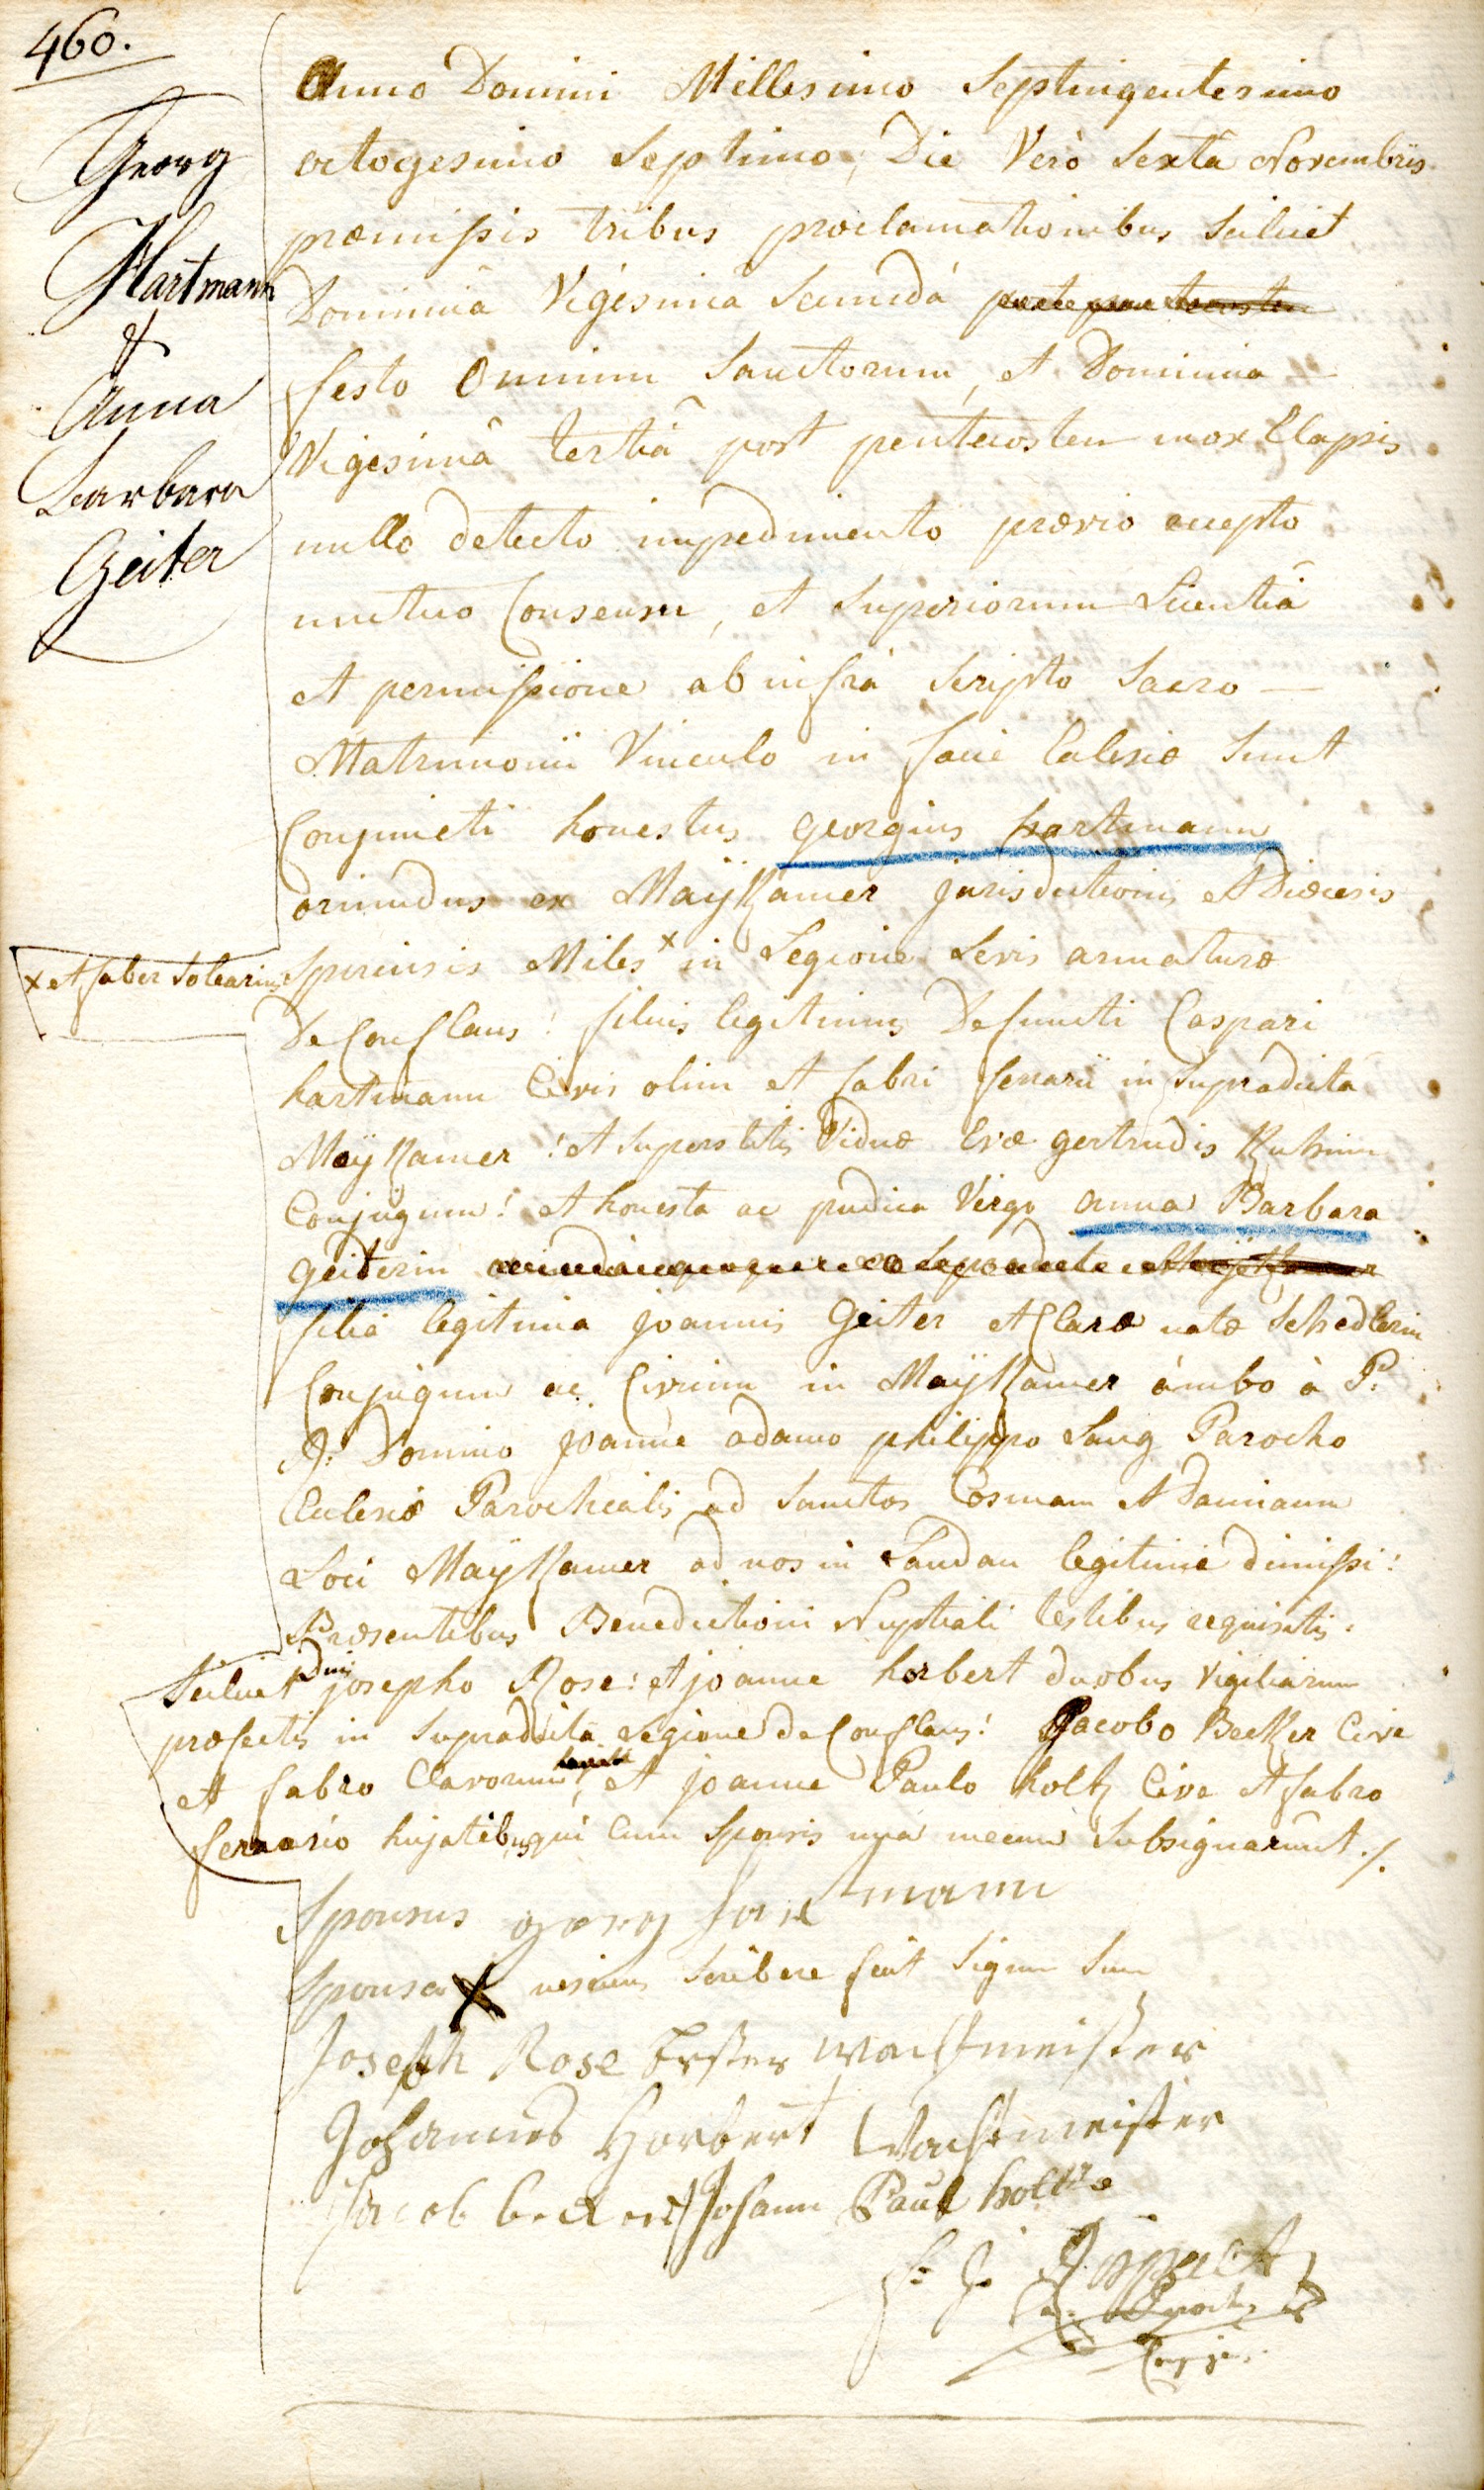 460.
Georg
Hartmann
&
Anna
Barbara
Geiter
Anno Domini Millesimo Septingentesimo
octogesimo Septimo, Die Verò Sexta Novembris
præmissis tribus proclamationibus scilicet
Dominicâ Vigesimâ Secundâ
festo Omnium Sanctorum, et Dominica
Vigesimâ tertiâ post pentecosten mox Elapsis
nullo detecto impedimento prævio accepto
mutuo Consensu, et Superiorum Scientiâ
et permissione ab infrà Scripto Sacro
Matrimonii Vinculo in facie Eclesiæ Sunt
Conjuncti honestus georgius hartmann
oriundus ex Maÿkamer jurisdictionis et Diœcesis
x et faber Solearius
Spirensis Miles x in Legione Levis armaturæ
de Conflans! filius legitimus Defuncti Caspari
hartmann Civis olim et fabri ferrarii in Supradicta
Maÿkamer! et Superstitis Viduæ Evæ gertrudis
Conjugum! et honesta ac pudica Virgo anna Barbara
geiterin
filia legitima joannis Geiter et Claræ natæ Schedlerin
Conjugum ac Civium in Maÿkamer ambo à P:
D: Domino joanne adamo philippo Lang Parocho
Eclesiæ Parochialis ad Sanctos Cosmam et Damianum
Loci Maÿkamer ad nos in Landau legitimè dimissi!
Præsentibus Benedictioni Nuptiali testibus requisitis:
Scilicet dnis josepho Rose: et joanne horbert duobus vigiliarum
præfectis in Supradicta Legione de Conflans! Jacobo Becker Cive
et fabro Clavorum, et joanne Paulo holtz Cive et fabro
ferrario hujatibus qui cum Sponsis unà mecum Subsignarunt ./.
Sponsus georg Hartmann
Sponsa X nesciens Scribere fecit Signum Suum
Joseph Rose Erster Wachtmeister
Johannes Horbert Wachtmeister
Jacob becker Johann Paul holtz